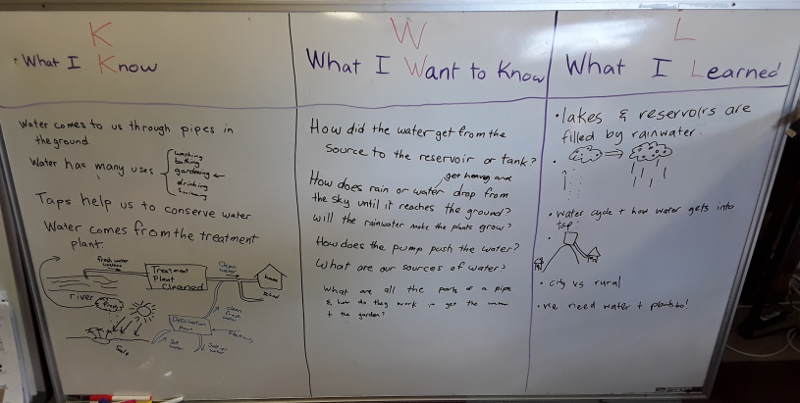 K
What I Know
Water comes to us through pipes in
the ground
Water has many uses
washing
bathing
gardening
drinking
swimming
Taps help us to conserve water
Water comes from the treatment
plant.
fresh water
Treatment
Plant
Cleansed
Clean
water
house
river
clean
fresh
water
Desalination
Plant
Salt
water
W
What I Want to Know
How did the water get from the
source to the reservoir or tank?
get heavy and
How does rain or water drop from
the sky until it reaches the ground?
Will the rainwater make the plants grow?
How does the pump push the water?
What are our sources of water?
What are all the parts of a pipe
& how do they work to get the water
to the garden?
L
What I Learned
• lakes & reservoirs are
filled by rainwater.
• water cycle + how water gets into
tap.
• city vs rural
• we need water + plants too!